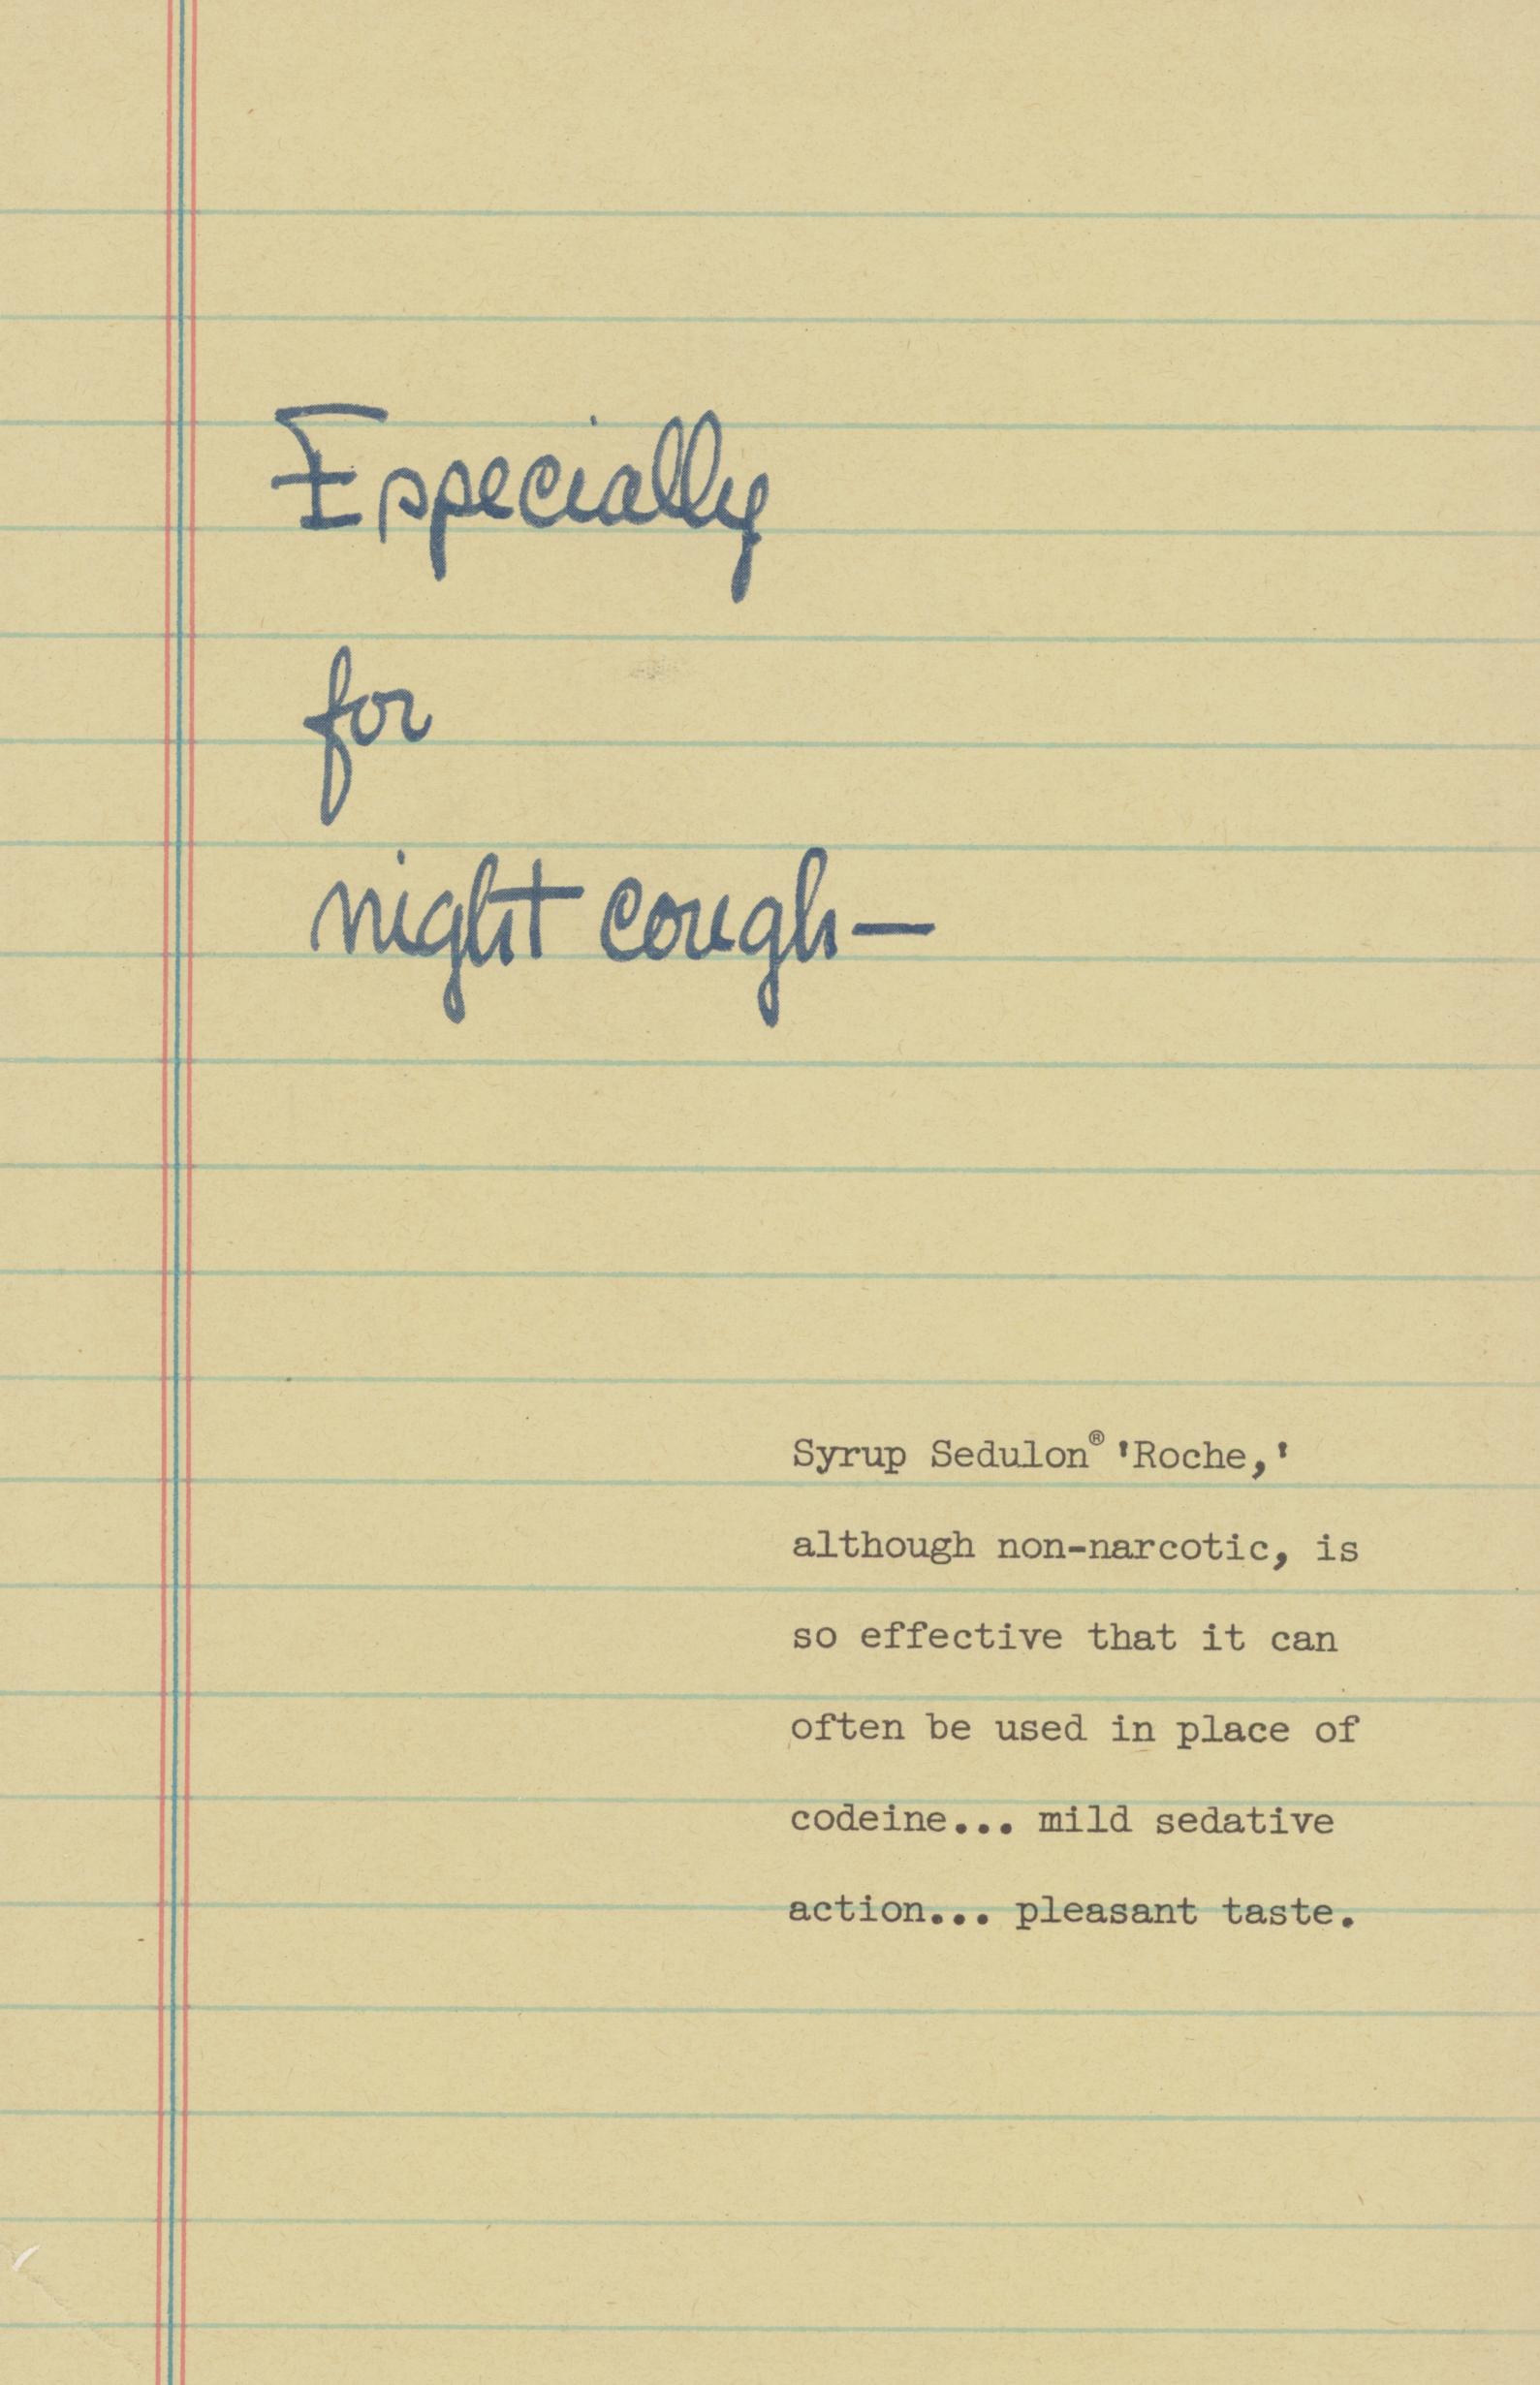 Especially
for
night cough—
Syrup Sedulon® 'Roche,'
although non-narcotic, is
so effective that it can
often be used in place of
codeine... mild sedative
action... pleasant taste.